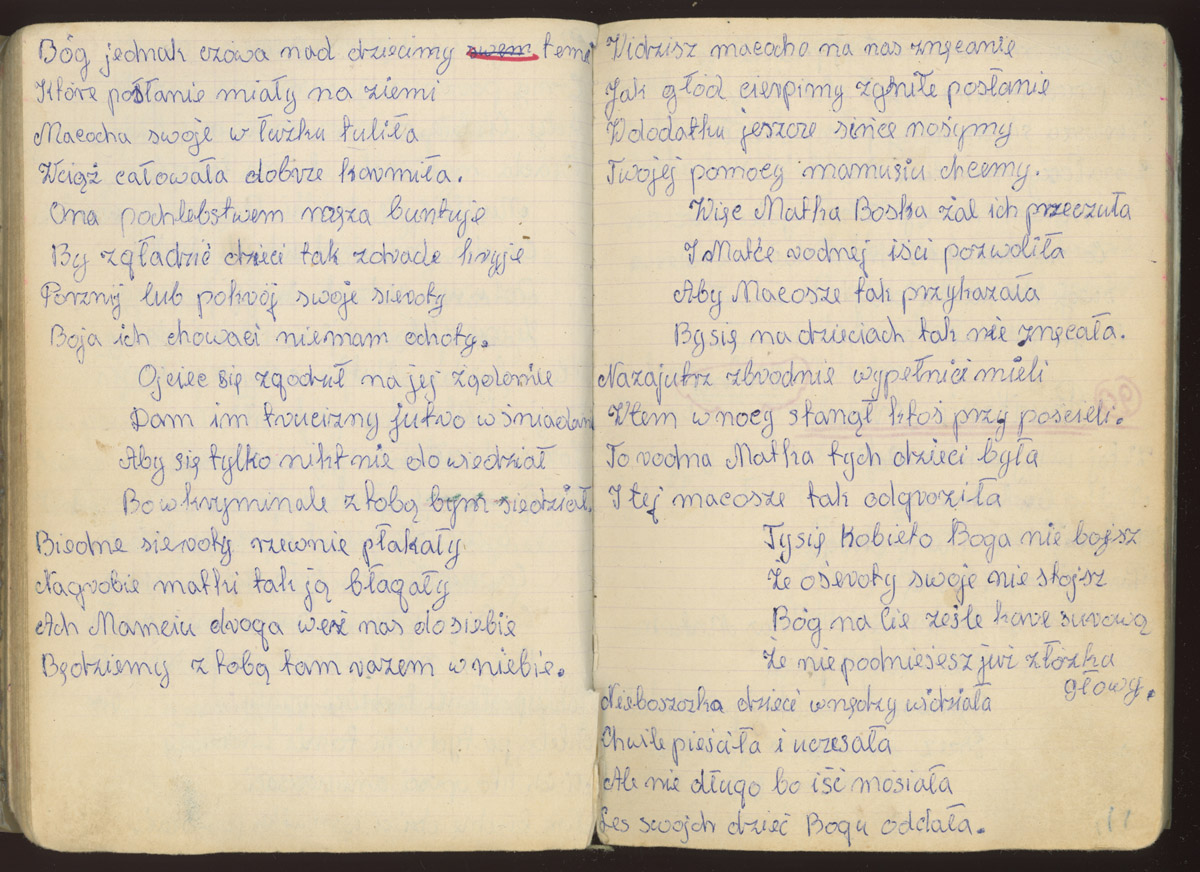 Bóg jednak czówa nad dziecimy swem temi
Które posłanie miały na ziemi
Macocha swoje w łużku tuliła
Wciąż całowała dobrze karmiła.
Ona pochlebstwem męża buntuje
By zgładzić dzieci tak zdrade kryje
Porznij lub pokrój swoje sieroty
Boja ich chowaci niemam ochoty.
Ojciec się zgodził na jej żądomie
Dam im trucizny jutro w śniadani
Aby się tylko nikt nie dowiedział
Bo w kryminale z tobą bym siedział.
Biedne sieroty rzewnie płakały
Nagrobie matki tak ją błagały
Ach Mamciu droga weź nas do siebie
Będziemy z tobą tam razem w niebie.
Widzisz macocho na nas znęcanie
Jak głód cierpimy zgniłe posłanie
W dodatku jeszcze sińce nosymy
Twojej pomocy mamusiu chcemy.
Więc Matka Boska żal ich przeczuła
I Matce rodnej iści pozwoliła
Aby Macosze tak przykazała
By się na dzieciach tak nie znęcała.
Nazajutrz zbrodnie wypełnici mieli
Wtem w nocy stanął ktoś przy poscieli.
To rodna Matka tych dzieci była
I tej macosze tak odgroziła
Ty się Kobieto Boga nie bojsz
Że ośeroty swoje nie stojsz
Bóg na Cie ześle kare surową
Że nie podniesiesz już z łózka
głowy.
Nieboszczka dzieci w nędzy widziała
Chwile pieściła i uczesała
Ale nie długo bo iść mosiała
Les swojch dzieć Bogu oddała.
11